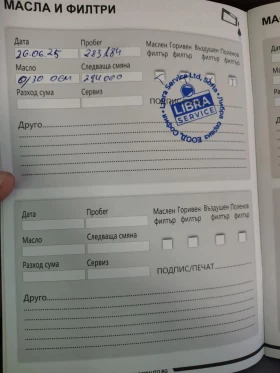 МАСЛА И ФИЛТРИ
Дата Пробег Маслен Горивен Въздушен Поленов
26.06.25 283184 филтър филтър филтър филтър
Масло Следваща смяна
0/30 OEM 294000
Разход сума Сервиз ПОДПИС
Libra Service Ltd, Sofia
LIBRA
SERVICE
Друго
Дата Пробег Маслен Горивен Въздушен Поленов
филтър филтър филтър филтър
Масло Следваща смяна
Разход сума Сервиз ПОДПИС/ПЕЧАТ
Друго